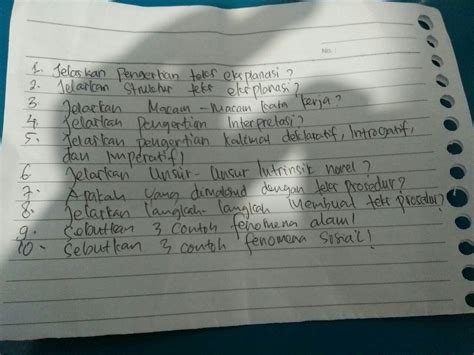 No :
1. Jelaskan Pengertian teks eksplanasi?
2. Jelaskan struktur teks eksplanasi?
3 Jelaskan Macam-Macam kata kerja?
4. Jelaskan pengertian Interpretasi?
5. Jelaskan pengertian kalimat deklaratif, Introgatif,
dan imperatif!
6 Jelaskan Unsur-Unsur Intrinsik novel?
7. Apakah yang dimaksud dengan teks prosedur?
8. Jelaskan langkah-langkah Membuat teks prosedur?
9. Sebutkan 3 contoh fenomena alam!
10. Sebutkan 3 contoh fenomena sosial!